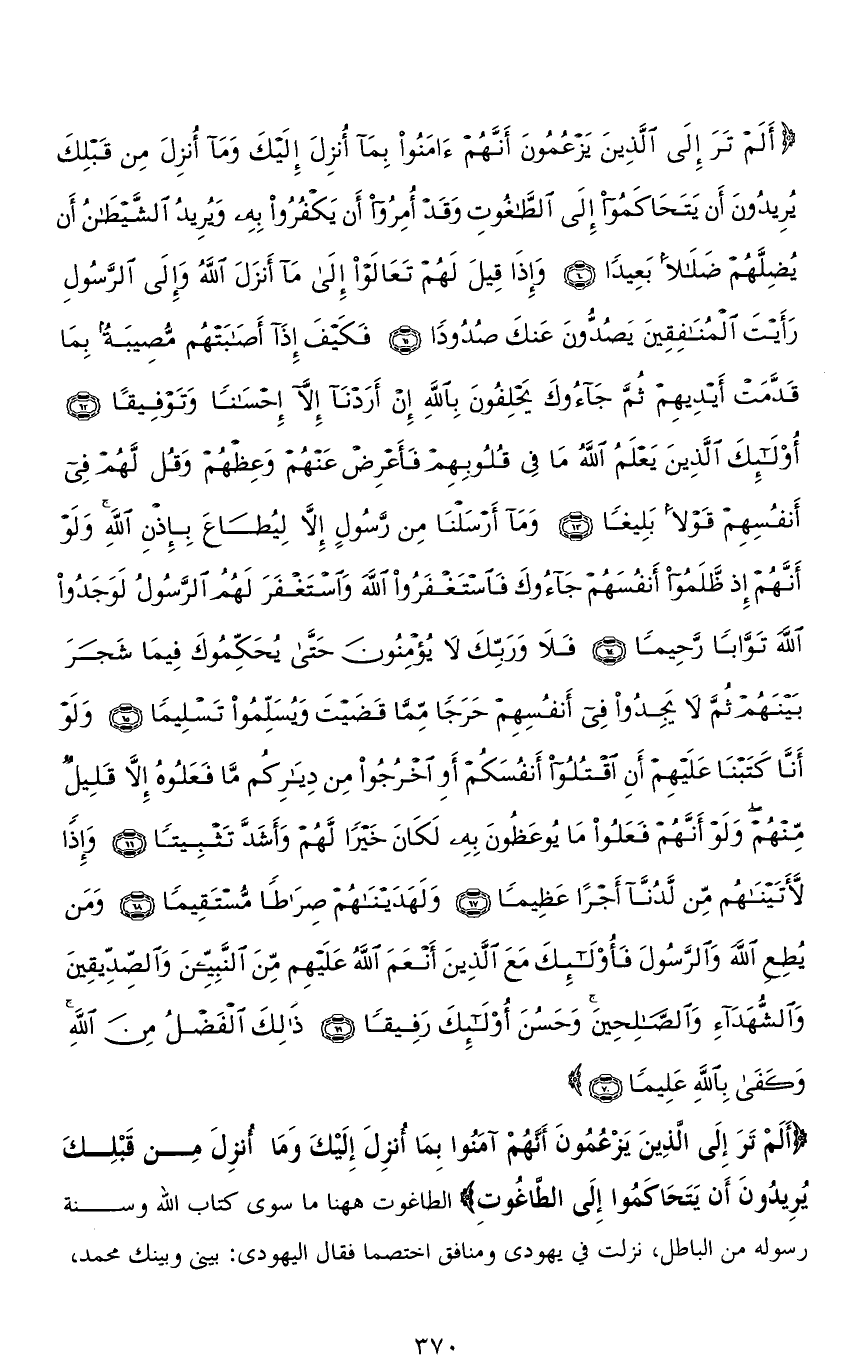 ﴿أَلَمْ تَرَ إِلَى ٱلَّذِينَ يَزْعُمُونَ أَنَّهُمْ ءَامَنُوا۟ بِمَآ أُنزِلَ إِلَيْكَ وَمَآ أُنزِلَ مِن قَبْلِكَ
يُرِيدُونَ أَن يَتَحَاكَمُوٓا۟ إِلَى ٱلطَّـٰغُوتِ وَقَدْ أُمِرُوٓا۟ أَن يَكْفُرُوا۟ بِهِۦ وَيُرِيدُ ٱلشَّيْطَـٰنُ أَن
يُضِلَّهُمْ ضَلَـٰلًۢا بَعِيدًا ٦٠ وَإِذَا قِيلَ لَهُمْ تَعَالَوْا۟ إِلَىٰ مَآ أَنزَلَ ٱللَّهُ وَإِلَى ٱلرَّسُولِ
رَأَيْتَ ٱلْمُنَـٰفِقِينَ يَصُدُّونَ عَنكَ صُدُودًا ٦١ فَكَيْفَ إِذَآ أَصَـٰبَتْهُم مُّصِيبَةٌۢ بِمَا
قَدَّمَتْ أَيْدِيهِمْ ثُمَّ جَآءُوكَ يَحْلِفُونَ بِٱللَّهِ إِنْ أَرَدْنَآ إِلَّآ إِحْسَـٰنًا وَتَوْفِيقًا ٦٢
أُو۟لَـٰٓئِكَ ٱلَّذِينَ يَعْلَمُ ٱللَّهُ مَا فِى قُلُوبِهِمْ فَأَعْرِضْ عَنْهُمْ وَعِظْهُمْ وَقُل لَّهُمْ فِىٓ
أَنفُسِهِمْ قَوْلًۢا بَلِيغًا ٦٣ وَمَآ أَرْسَلْنَا مِن رَّسُولٍ إِلَّا لِيُطَاعَ بِإِذْنِ ٱللَّهِ ۚ وَلَوْ
أَنَّهُمْ إِذ ظَّلَمُوٓا۟ أَنفُسَهُمْ جَآءُوكَ فَٱسْتَغْفَرُوا۟ ٱللَّهَ وَٱسْتَغْفَرَ لَهُمُ ٱلرَّسُولُ لَوَجَدُوا۟
ٱللَّهَ تَوَّابًا رَّحِيمًا ٦٤ فَلَا وَرَبِّكَ لَا يُؤْمِنُونَ حَتَّىٰ يُحَكِّمُوكَ فِيمَا شَجَرَ
بَيْنَهُمْ ثُمَّ لَا يَجِدُوا۟ فِىٓ أَنفُسِهِمْ حَرَجًا مِّمَّا قَضَيْتَ وَيُسَلِّمُوا۟ تَسْلِيمًا ٦٥ وَلَوْ
أَنَّا كَتَبْنَا عَلَيْهِمْ أَنِ ٱقْتُلُوٓا۟ أَنفُسَكُمْ أَوِ ٱخْرُجُوا۟ مِن دِيَـٰرِكُم مَّا فَعَلُوهُ إِلَّا قَلِيلٌ
مِّنْهُمْ ۖ وَلَوْ أَنَّهُمْ فَعَلُوا۟ مَا يُوعَظُونَ بِهِۦ لَكَانَ خَيْرًا لَّهُمْ وَأَشَدَّ تَثْبِيتًا ٦٦ وَإِذًا
لَّـَٔاتَيْنَـٰهُم مِّن لَّدُنَّآ أَجْرًا عَظِيمًا ٦٧ وَلَهَدَيْنَـٰهُمْ صِرَٰطًا مُّسْتَقِيمًا ٦٨ وَمَن
يُطِعِ ٱللَّهَ وَٱلرَّسُولَ فَأُو۟لَـٰٓئِكَ مَعَ ٱلَّذِينَ أَنْعَمَ ٱللَّهُ عَلَيْهِم مِّنَ ٱلنَّبِيِّـۧنَ وَٱلصِّدِّيقِينَ
وَٱلشُّهَدَآءِ وَٱلصَّـٰلِحِينَ ۚ وَحَسُنَ أُو۟لَـٰٓئِكَ رَفِيقًا ٦٩ ذَٰلِكَ ٱلْفَضْلُ مِنَ ٱللَّهِ ۚ
وَكَفَىٰ بِٱللَّهِ عَلِيمًا ٧٠﴾
﴿أَلَمْ تَرَ إِلَى الَّذِينَ يَزْعُمُونَ أَنَّهُمْ آمَنُوا بِمَا أُنزِلَ إِلَيْكَ وَمَا أُنزِلَ مِـن قَبْلِـكَ
يُرِيدُونَ أَن يَتَحَاكَمُوا إِلَى الطَّاغُوتِ﴾ الطاغوت ههنا ما سوى كتاب الله وسـنة
رسوله من الباطل، نزلت في يهودى ومنافق اختصما فقال اليهودى: بيني وبينك محمد،
٣٧٠